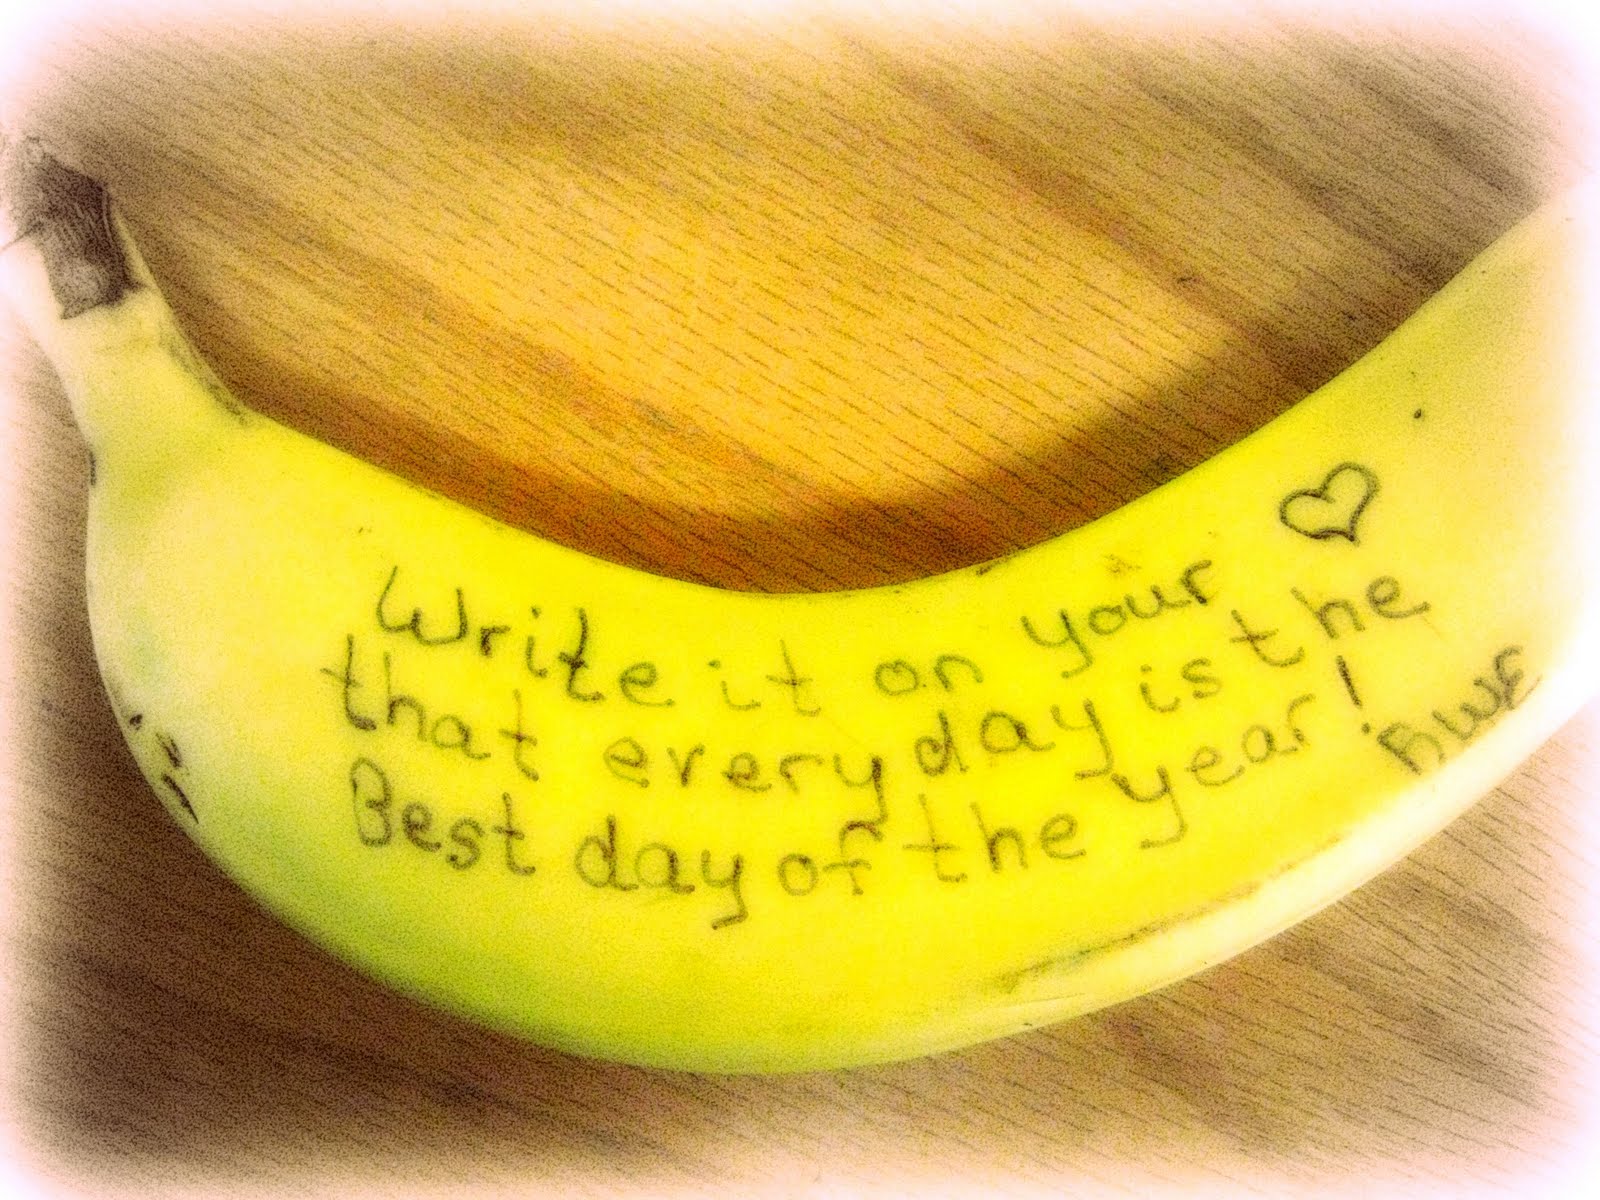 Write it on your ♡
that every day is the
Best day of the year!
RWE